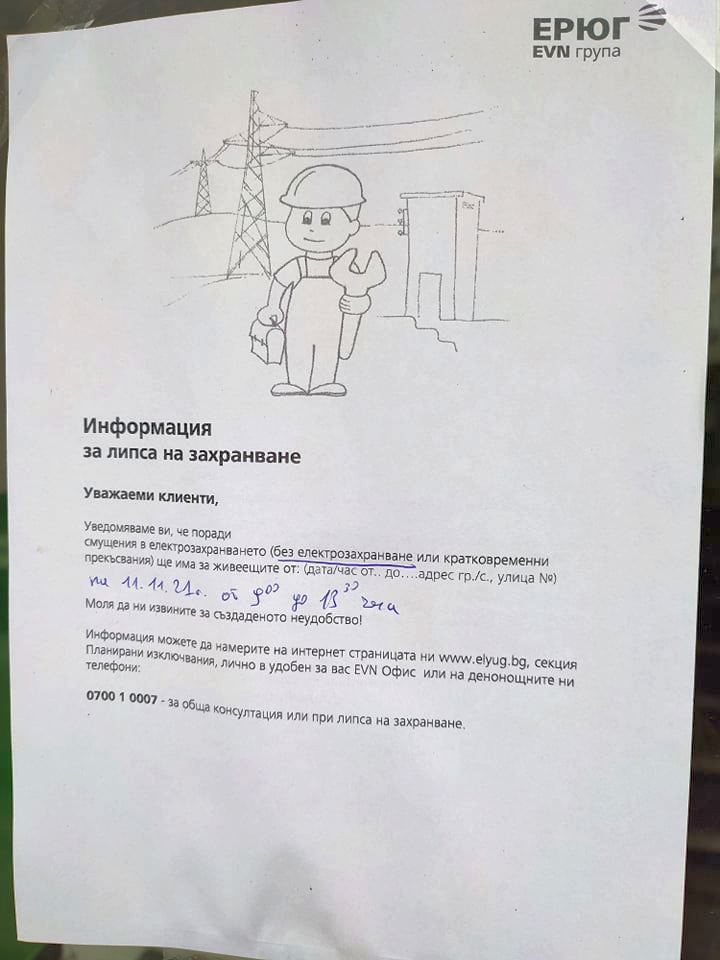 ЕРЮГ
EVN група
Информация
за липса на захранване
Уважаеми клиенти,
Уведомяваме ви, че поради
смущения в електрозахранването (без електрозахранване или кратковременни
прекъсвания) ще има за живеещите от: (дата/час от.. до....адрес гр./с., улица №)
на 11.11.21г. от 9⁰⁰ до 13³⁰ часа
Моля да ни извините за създаденото неудобство!
Информация можете да намерите на интернет страницата ни www.elyug.bg, секция
Планирани изключвания, лично в удобен за вас EVN Офис или на денонощните ни
телефони:
0700 1 0007 - за обща консултация или при липса на захранване.